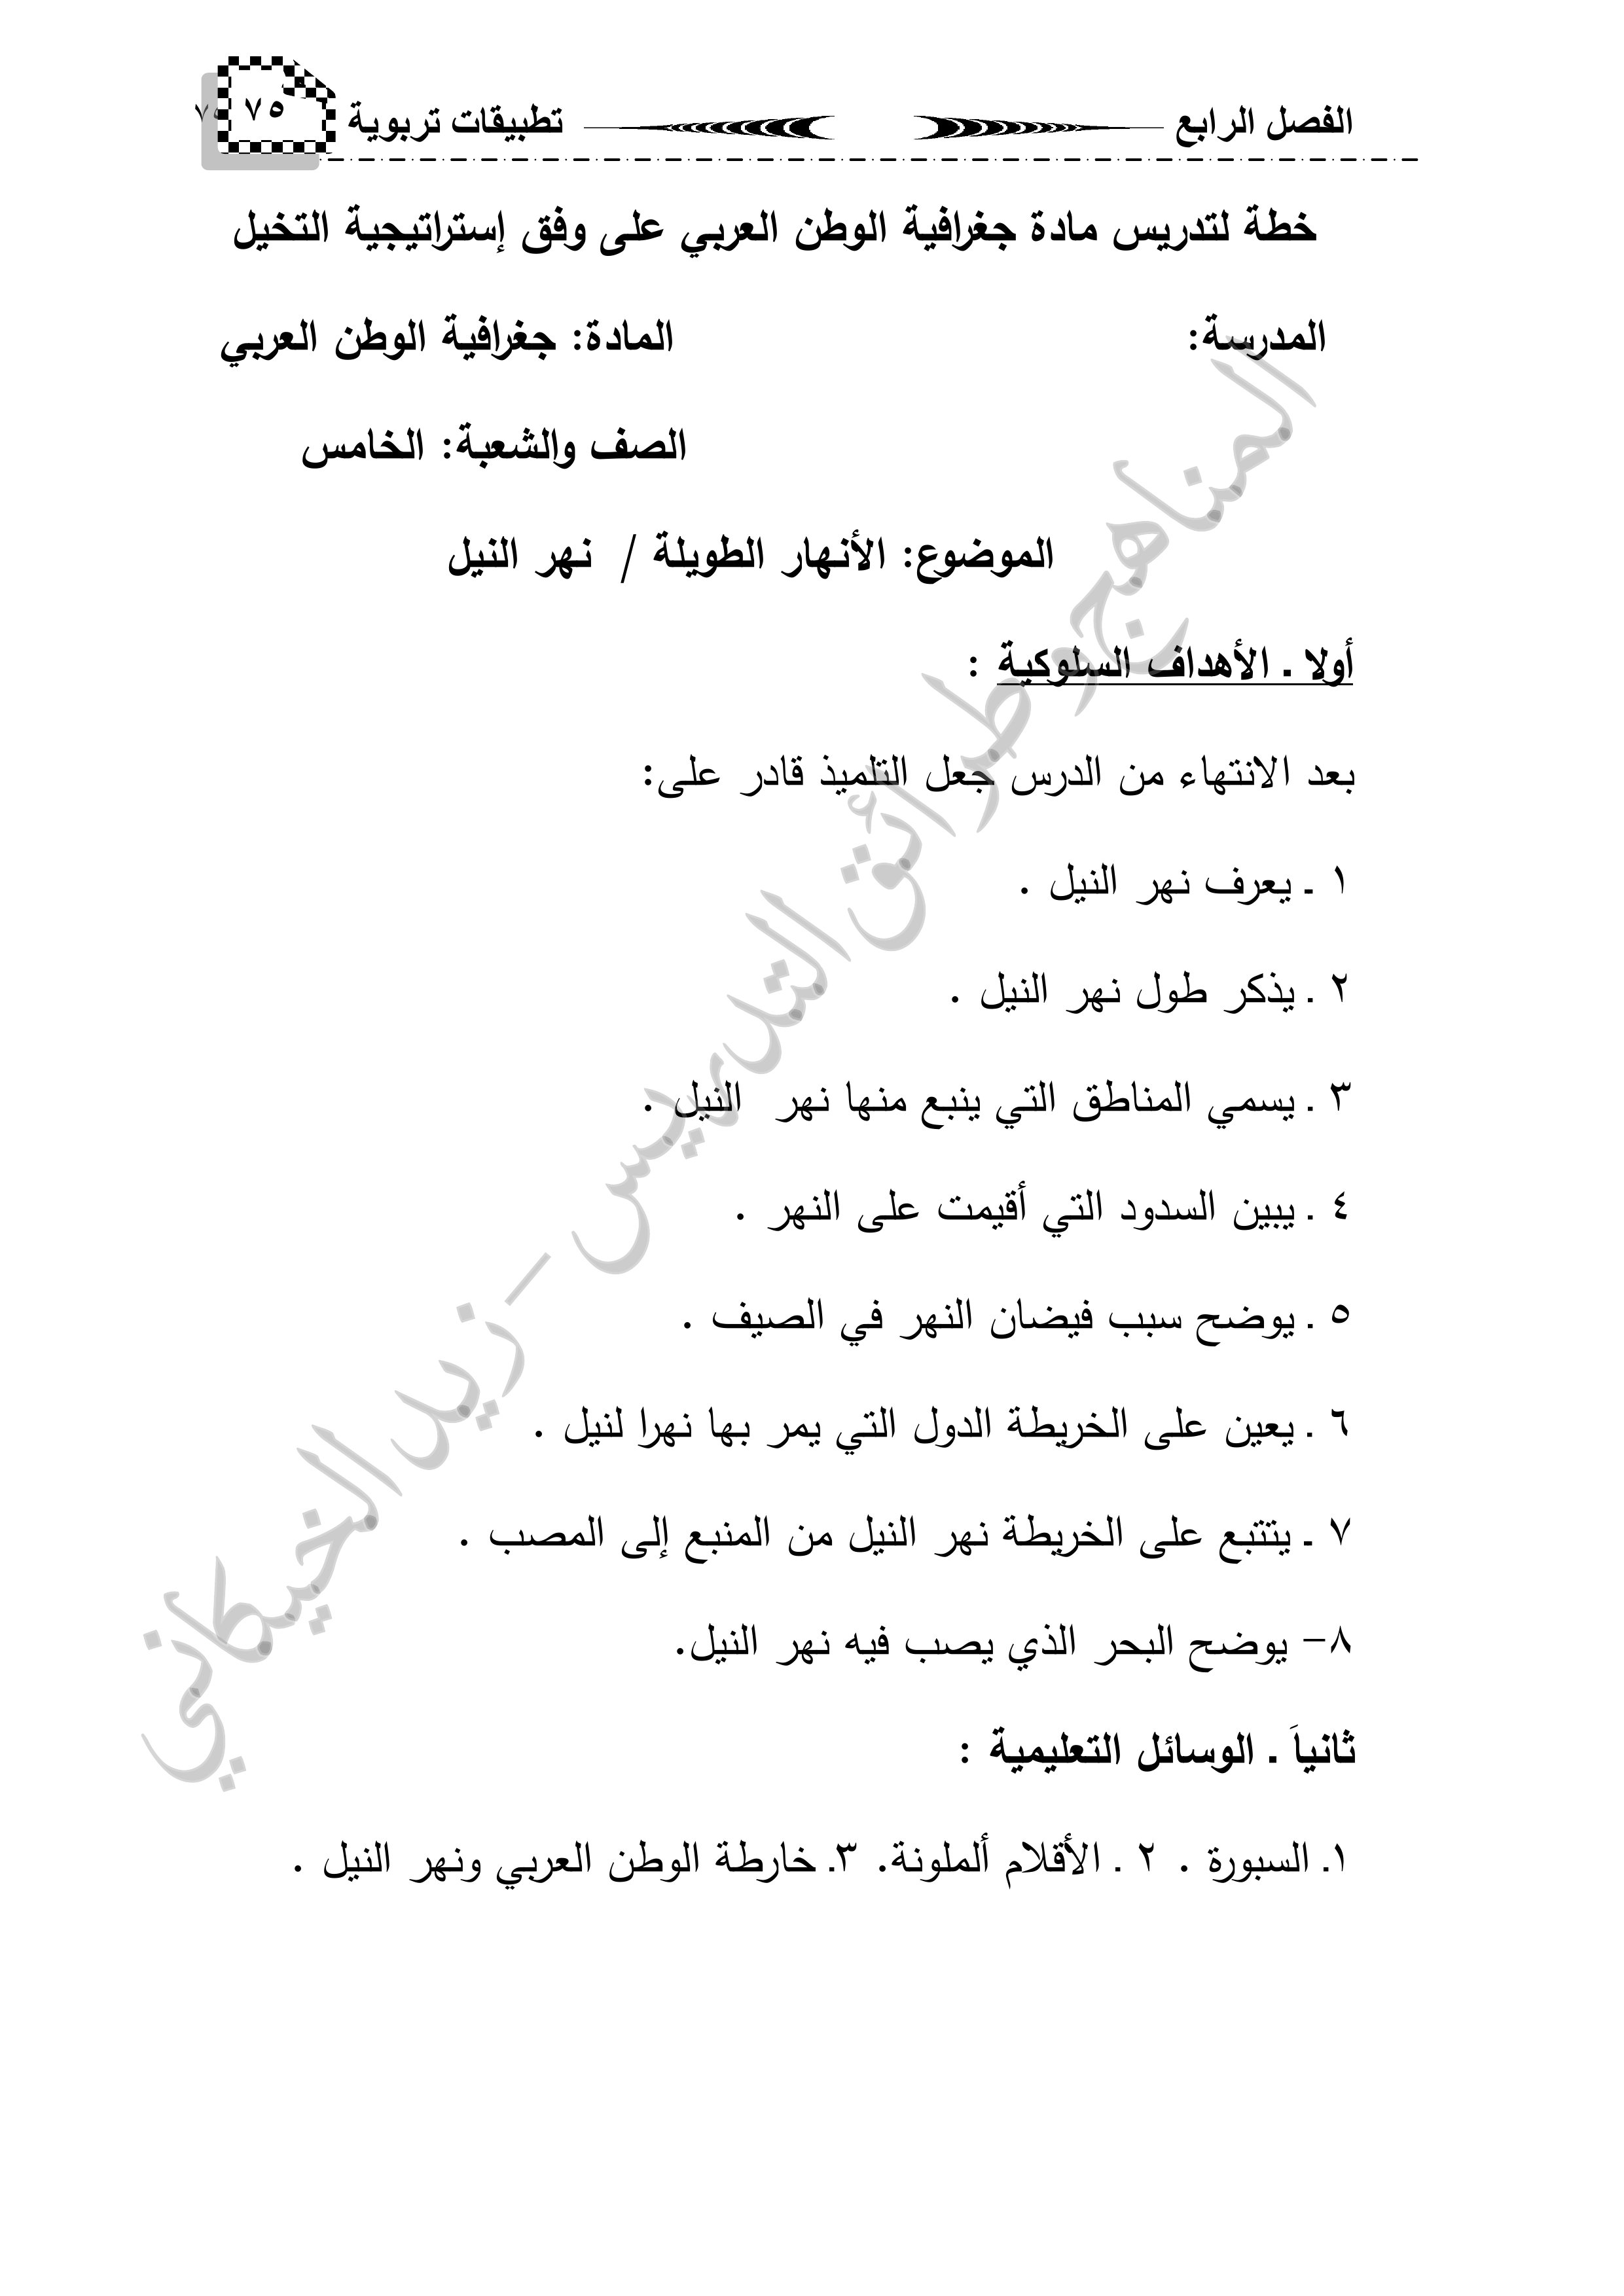 الفصل الرابع تطبيقات تربوية ٧٥
خطة لتدريس مادة جغرافية الوطن العربي على وفق إستراتيجية التخيل
المدرسة: المادة: جغرافية الوطن العربي
الصف والشعبة: الخامس
الموضوع: الأنهار الطويلة / نهر النيل
أولا ـ الأهداف السلوكية :
بعد الانتهاء من الدرس جعل التلميذ قادر على:
١ ـ يعرف نهر النيل .
٢ ـ يذكر طول نهر النيل .
٣ ـ يسمي المناطق التي ينبع منها نهر النيل .
٤ ـ يبين السدود التي أقيمت على النهر .
٥ ـ يوضح سبب فيضان النهر في الصيف .
٦ ـ يعين على الخريطة الدول التي يمر بها نهرا لنيل .
٧ ـ يتتبع على الخريطة نهر النيل من المنبع إلى المصب .
٨- يوضح البحر الذي يصب فيه نهر النيل.
ثانياَ ـ الوسائل التعليمية :
١ـ السبورة . ٢ ـ الأقلام ألملونة. ٣ـ خارطة الوطن العربي ونهر النيل .
المناهج وطرائق التدريس – زيد الخيكاني